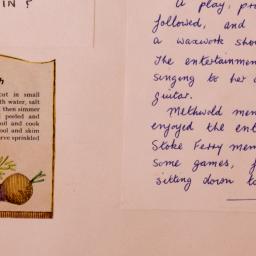 IN ?
cut in small
th water, salt
then simmer
peeled and
out and cook
ool and skim
rve sprinkled
A play, pro
followed, and
a waxwork sho
The entertainmen
singing to her o
guitar.
Methwold men
enjoyed the ent
Stoke Ferry mem
some games, f
sitting down to